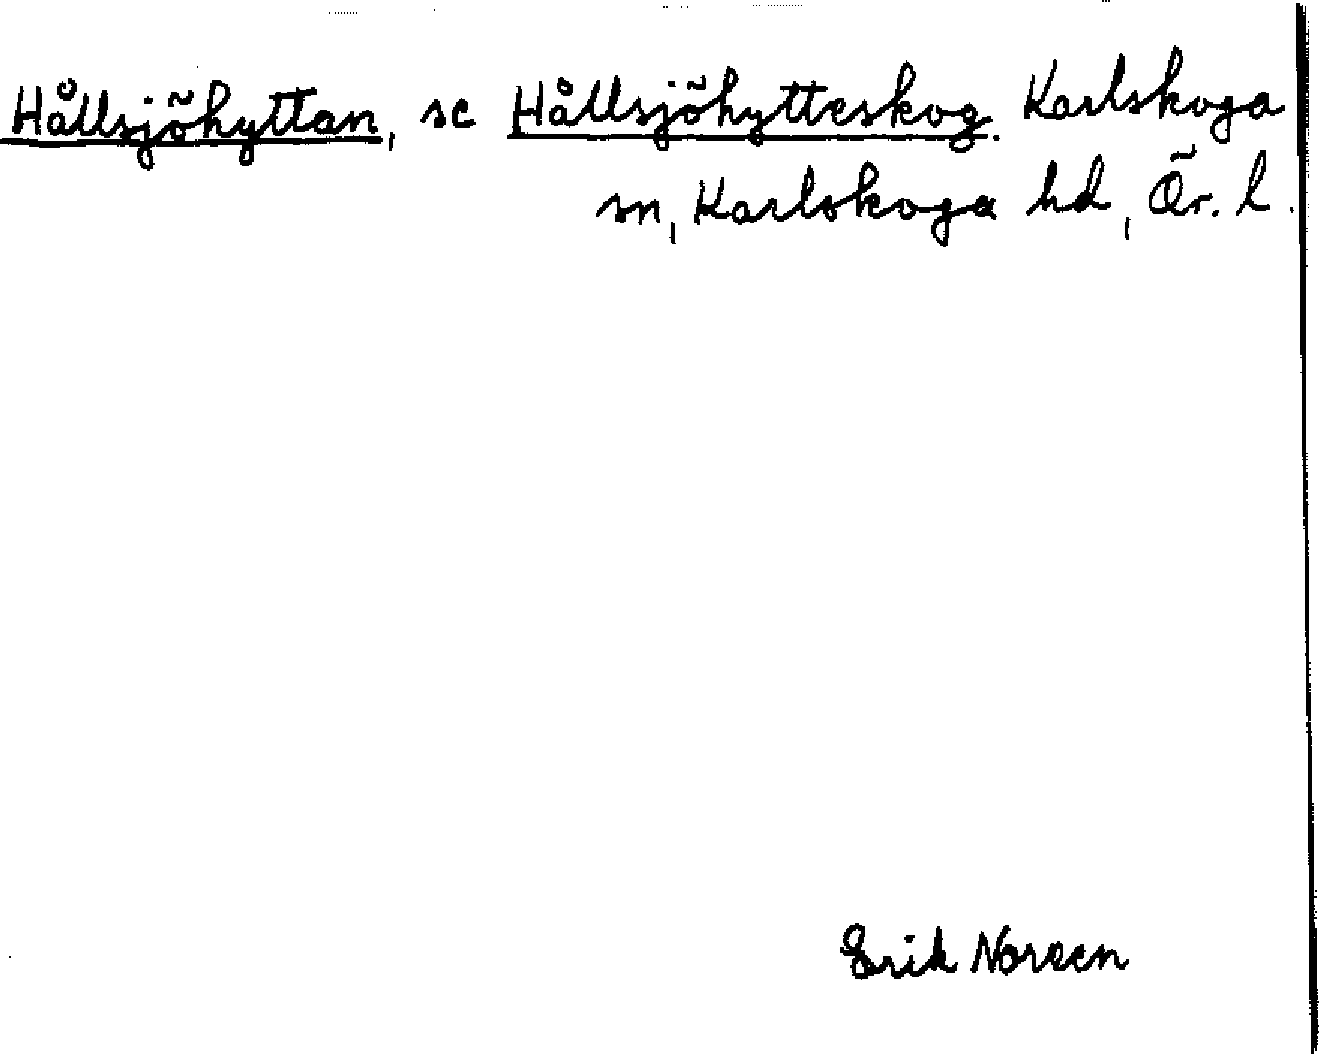 Hållsjöhyttan, se Hållsjöhytteskog. Karlskoga
sn, Karlskoga hd, Ör. l.
Erik Noreen